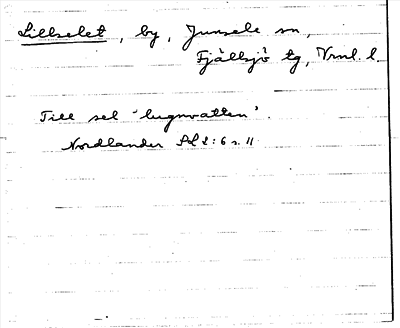 Lillselet, by, Junsele sn,
Fjällsjö tg, Vrml. l.
Till sel 'lugnvatten'.
Nordlander 2:6 s. 11